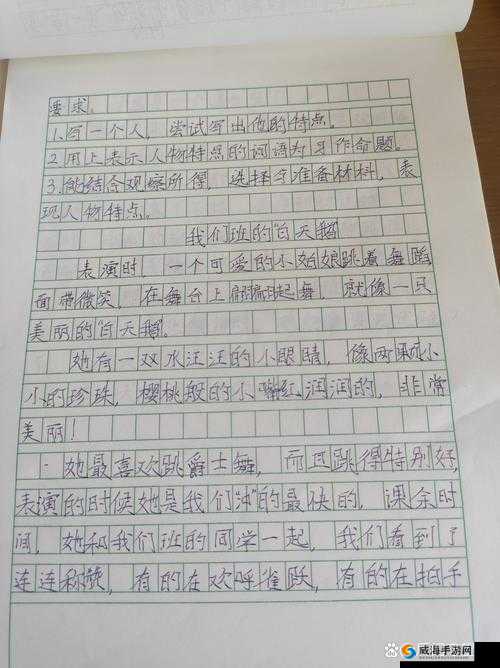 要求。
1.写一个人，尝试写出他的特点。
2.用上表示人物特点的词语为习作命题。
3.能结合观察所得，选择于准备材料，表
现人物特点。
我们班的"白天鹅"
表演时，一个可爱的小姑娘跳着舞蹈
面带微笑，在舞台上翩翩起舞，就像一只
美丽的"白天鹅"。
她有一双水汪汪的小眼睛，像两颗小
小的珍珠，樱桃般的小嘴红润润的，非常
美丽！
她最喜欢跳爵士舞，而且跳得特别好，
表演的时候她是我们"冲"的最快的，课余时
间，她和我们班的同学一起，我们看到了
连连称赞，有的在欢呼雀跃，有的在拍手
威海手游网